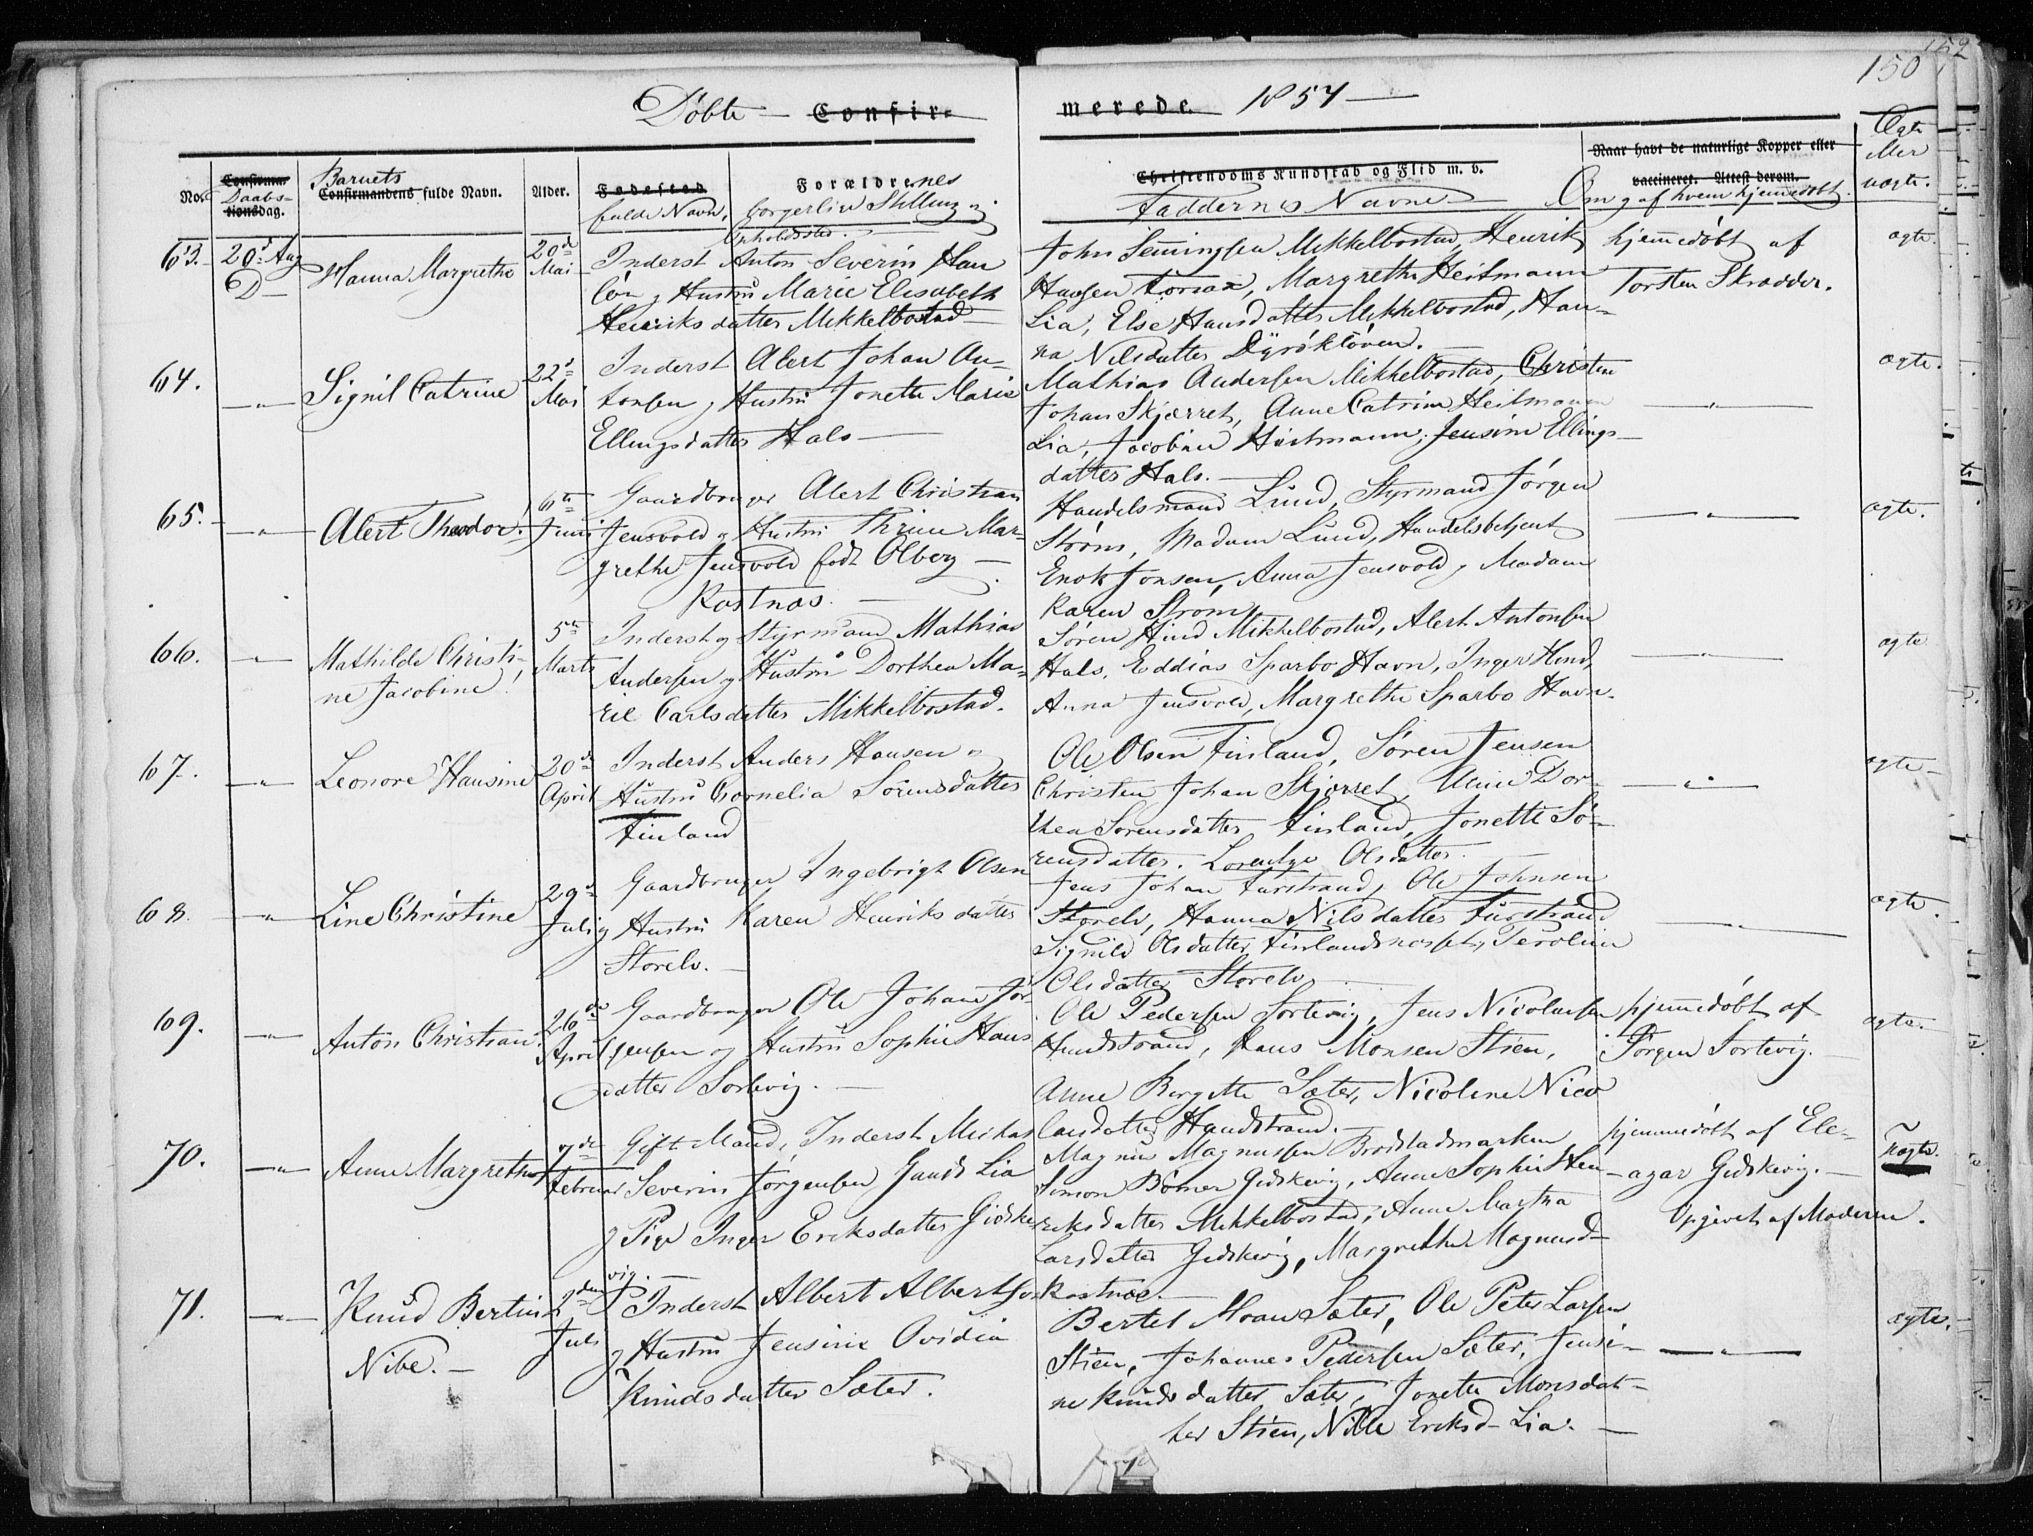 150
152
Döbte — Confir=
merede 1857 —
No.
Confirma=
Daabs-
tionsdag.
Barnets
Confirmandens fulde Navn.
Alder.
Fødested
fulde Navn,
Forældrenes
borgerlige Stilling og
Opholdssted.
Christendoms Kundskab og Flid m. v.
Faddernes Navne
Naar havt de naturlige Kopper eller
vaccineret. Attest derom.
Om og af hvem hjemmedøbt.
Ægte
eller
uægte.
63. 20d Aug
D—
Hanna Margrethe
20de
Mai
Inderst Anton Severin Han
sen og Hustru Maree Elisabeth
Henriksdatter Mikkelbostad —
John Semingsen Mikkelbostad, Henrik
Hansen, Margrethe Heitmann
Lia, Else Hansdatter Mikkelbostad, Han-
na Nilsdatter Dyröklöven. —
hjemmedøbt af
Torsten Skrædder.
ægte.
64.
—"—
Signil Catrine
22d
Mai
Inderst Alert Johan An-
tonsen og Hustru Jonette Marie
Ellingsdatter Hals —
Mathias Andersen Mikkelbostad, Christen
Johan Skjærret, Anne Catrine Heitmann
Lia, Jacobine Heitmann, Jensine Ellings-
datter Hals. —
—"—
ægte.
65. —"—
Alert Theodor.
6te
Juni
Gaardbruger Alert Christian
Jensvold og Hustru Thrine Mar-
grethe Jensvold født Olberg —
Kastnæs. —
Handelsmand Lund, Styrmand Jörgen
Ström, Madam Lund, Handelsbetjent
Enok Jonsen, Anna Jensvold, Madam
Karen Ström
—"—
ægte.
66. —"—
Mathilde Christi-
ne Jacobine!
5te
Marts
Inderst og Styrmand Mathias
Andersen og Hustru Dorthea Ma-
rie Carlsdatter Mikkelbostad.
Sören Hind Mikkelbostad, Alert Antonsen
Hals, Eddias Sparbo Havn, Inger Hind,
Anna Jensvold, Margrethe Sparbo Havn.
—"—
ægte
67. —"—
Leonore Hansine
20de
April
Inderst Anders Hansen og
Hustru Cornelia Sörensdatter
Finland
Ole Olsen Finland, Sören Jensen
Christen Johan Skjærret, Anne Dor-
thea Sörensdatter Finland, Jonette Sö-
rensdatter. Lorentze Olsdatter.
—"—
ægte —
68. —"—
Line Christine
29d
Juli
Gaardbruger Ingebrigt Olsen
og Hustru Karen Henriksdatter
Storelv. —
Jens Johan Furstrand, Ole Johnsen
Storelv, Hanna Nilsdatter Furstrand
Signild Olsdatter Finlandsnesset, Peroline
Olsdatter Storelv
—"—
ægte.
69. —"—
Anton Christian.
26de
April
Gaardbruger Ole Johan Jör-
gensen og Hustru Sophie Hans
datter Sortevig. —
Ole Pedersen Sortevig, Jens Nicolaisen
Hundstrand, Hans Monsen Stien,
Anne Bergitte Sæter, Nicoline Nico
laisdatter Hundstrand. —
hjemmedøbt af
Jörgen Sortevig.
ægte.
70. —"—
Anne Margrethe
7de
Februar
Gift Mand, Inderst Mickal
Severin Jörgensen Lia
og Pige Inger Ericksdatter Gidske
vig.
Magnus Magnussen Brostadmarken
Simon Bömer Gidskevig, Anne Sophie Hen
riksdatter Mikkelbostad, Anne Martha
Larsdatter Gidskevig, Margrethe Magnusd-
Kastnæs.
hjemmedøbt af Ele-
-azar Gidskevig. —
Opgivet af Moderen.
uægte.
71. —"—
Knud Bertinus
Nibe. —
2den
Juli
Inderst Albert Albertsen
og Hustru Jensine Ovidia
Knudsdatter Sæter.
Bertel Moan Sæter, Ole Peter Larsen
Stien, Johannes Pedersen Sæter, Jensi-
ne Knudsdatter Sæter, Jonette Monsdat-
ter Stien, Nille Ericksd- Lia. —
—"—
ægte.